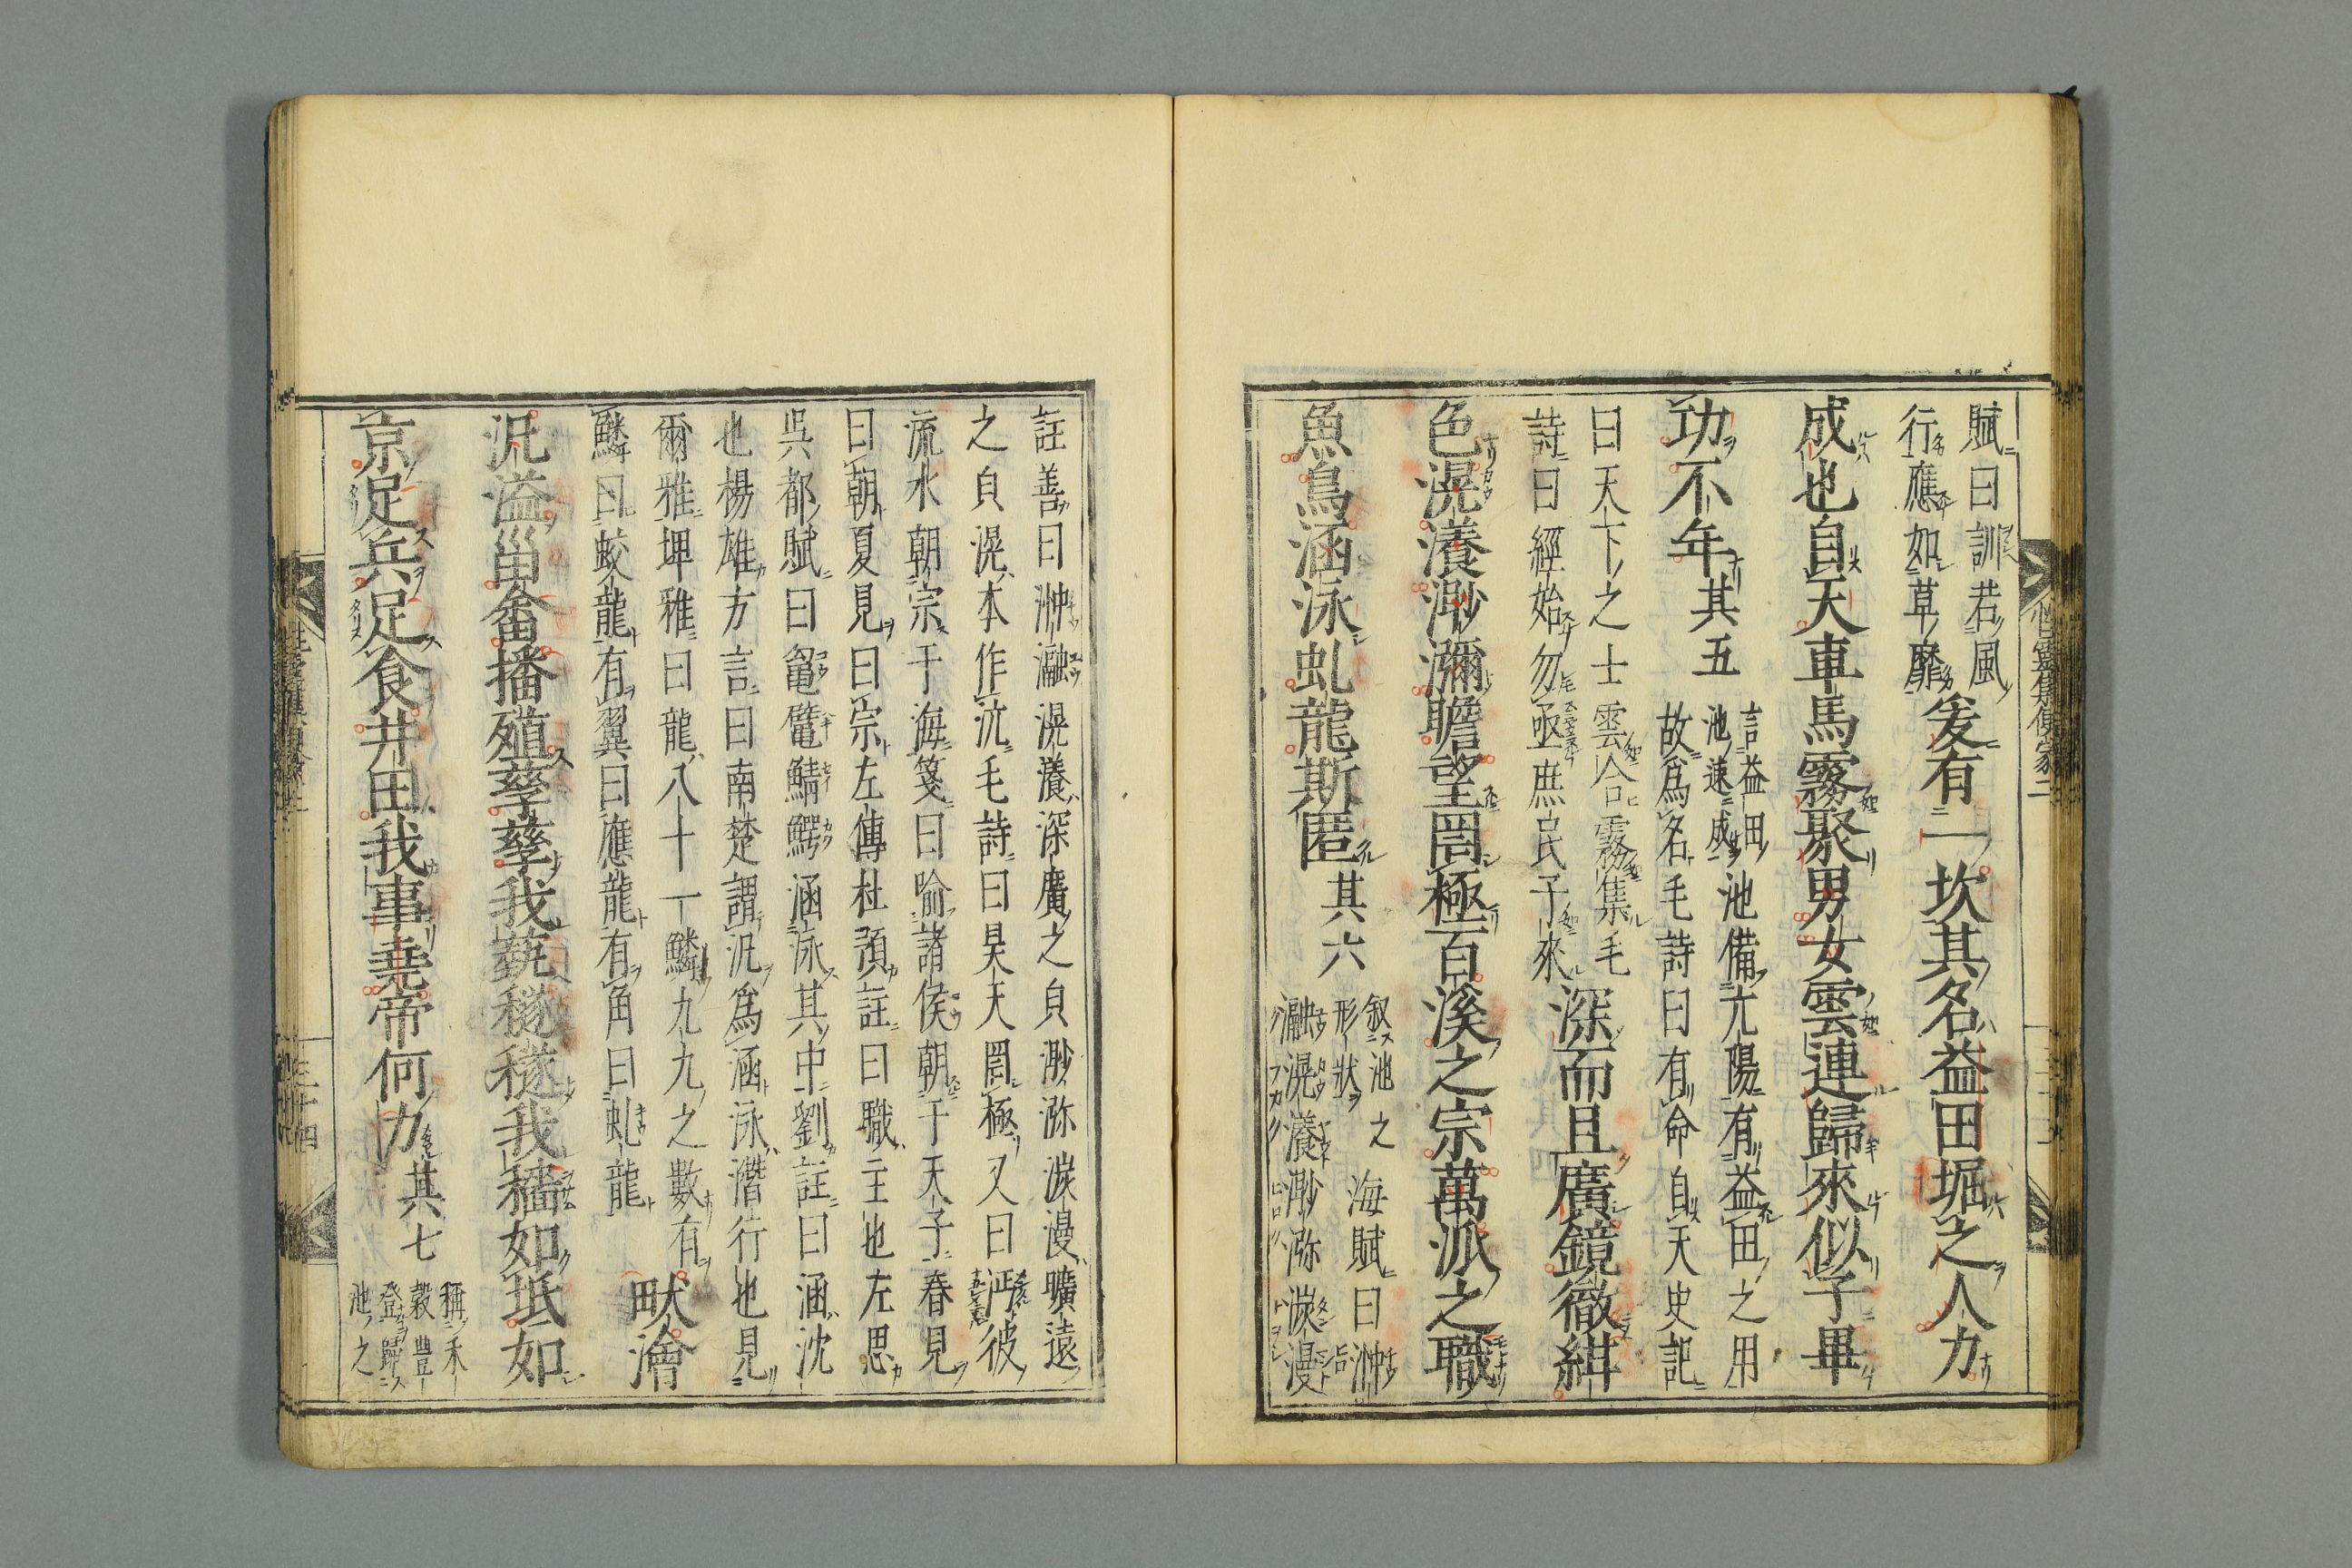 賦曰訓若風
行應如草靡
爰有一坎其名益田堀之人力
成也自天車馬霧聚男女雲連歸來似子畢
功不年其五
言益田
池速成
池備亢陽有益田之用
故爲名毛詩曰有命自天史記
曰天下之士雲合霧集毛
詩曰經始勿亟庶民子來
深而且廣鏡徹紺
色滉瀁渺瀰瞻望罔極百溪之宗萬派之職
魚鳥涵泳虬龍斯匿其六
叙池之
形狀
海賦曰浺
瀜滉瀁渺㳽湠漫
性靈集便蒙二
註善曰浺瀜滉瀁深廣之皃渺㳽湠漫曠遠
之皃滉本作沆毛詩曰昊天罔極又曰沔彼
流水朝宗于海箋曰喻諸侯朝于天子春見
曰朝夏見曰宗左傳杜預註曰職主也左思
吳都賦曰龜鼊鯖鰐涵泳其中劉註曰涵沈
也楊雄方言曰南楚謂沉爲涵泳潛行也見
爾雅埤雅曰龍八十一鱗九九之數有
鱗曰蛟龍有翼曰應龍有角曰虬龍
畎澮
泥溢甾畬播殖孳孳我蓺穟穟我穡如坻如
京足兵足食井田我事堯帝何力其七
稱禾
穀豊
登歸
池之
三十四